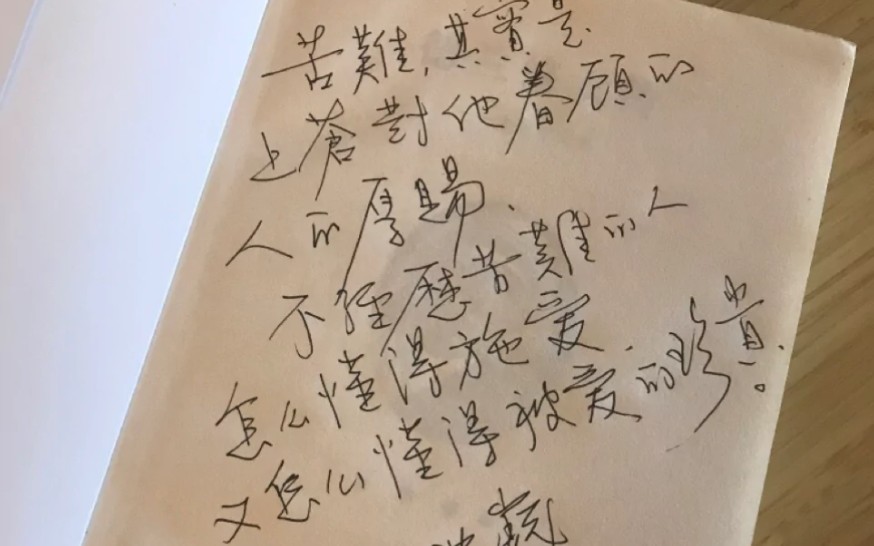 苦難，其實是
上蒼對他眷顧的
人的厚賜、
不經歷苦難的人
怎么懂得施爱、
又怎么懂得被爱的珍貴。